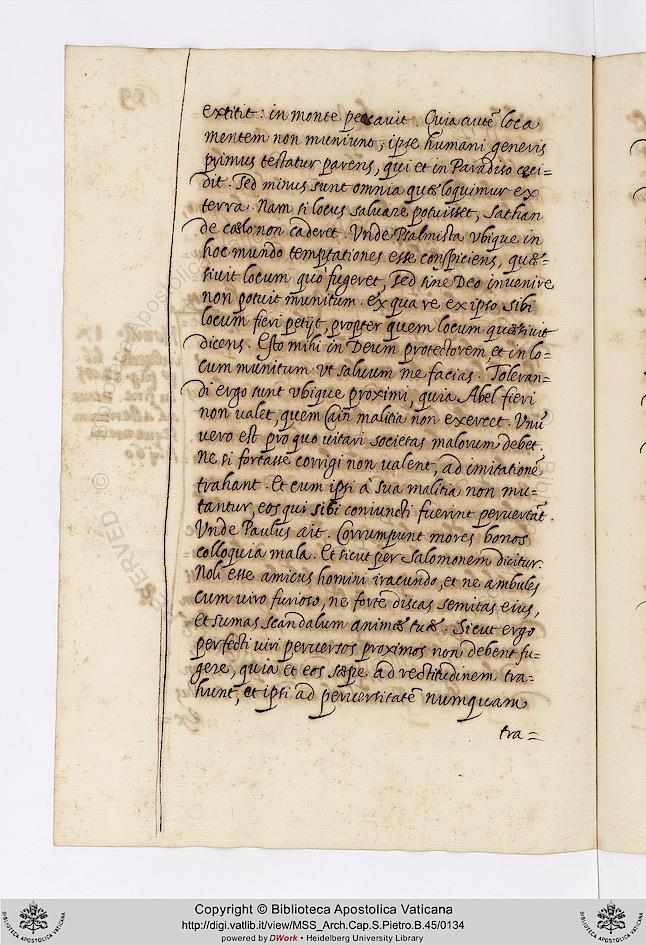 extitit: in monte peccavit. Quia autẽ loca
mentem non muniunt, ipse humani generis
primus testatur parens, qui et in Paradiso ceci=
dit. Sed minus sunt omnia quæ loquimur ex
terra. Nam si locus salvare potuisset, Sathan
de cœlo non caderet. Vnde Psalmista vbique in
hoc mundo temptationes esse conspiciens, quæ=
sivit locum quò fugeret, sed sine Deo invenire
non potuit munitum. ex qua re ex ipso sibi
locum fieri petijt, propter quem locum quæsivit
dicens. Esto mihi in Deum protectorem, et in lo=
cum munitum vt salvum me facias. Toleran=
di ergo sunt vbique proximi, quia Abel fieri
non valet, quem Cain malitia non exercet. Vnũ
vero est pro quo vitari societas malorum debet.
ne si fortasse corrigi non valent, ad imitationẽ
trahant. Et cum ipsi à sua malitia non mu=
tantur, eos qui sibi coniuncti fuerint pervertãt.
Vnde Paulus ait. Corrumpunt mores bonos
colloquia mala. Et sicut per Salomonem dicitur.
Noli esse amicus homini iracundo, et ne ambules
cum viro furioso, ne fortè discas semitas eius,
et sumas scandalum animæ tuæ. Sicut ergo
perfecti viri perversos proximos non debent fu=
gere, quia et eos sæpe ad rectitudinem tra=
hunt, et ipsi ad perversitatẽ numquam
tra=
Copyright © Biblioteca Apostolica Vaticana
http://digi.vatlib.it/view/MSS_Arch.Cap.S.Pietro.B.45/0134
powered by DWork • Heidelberg University Library